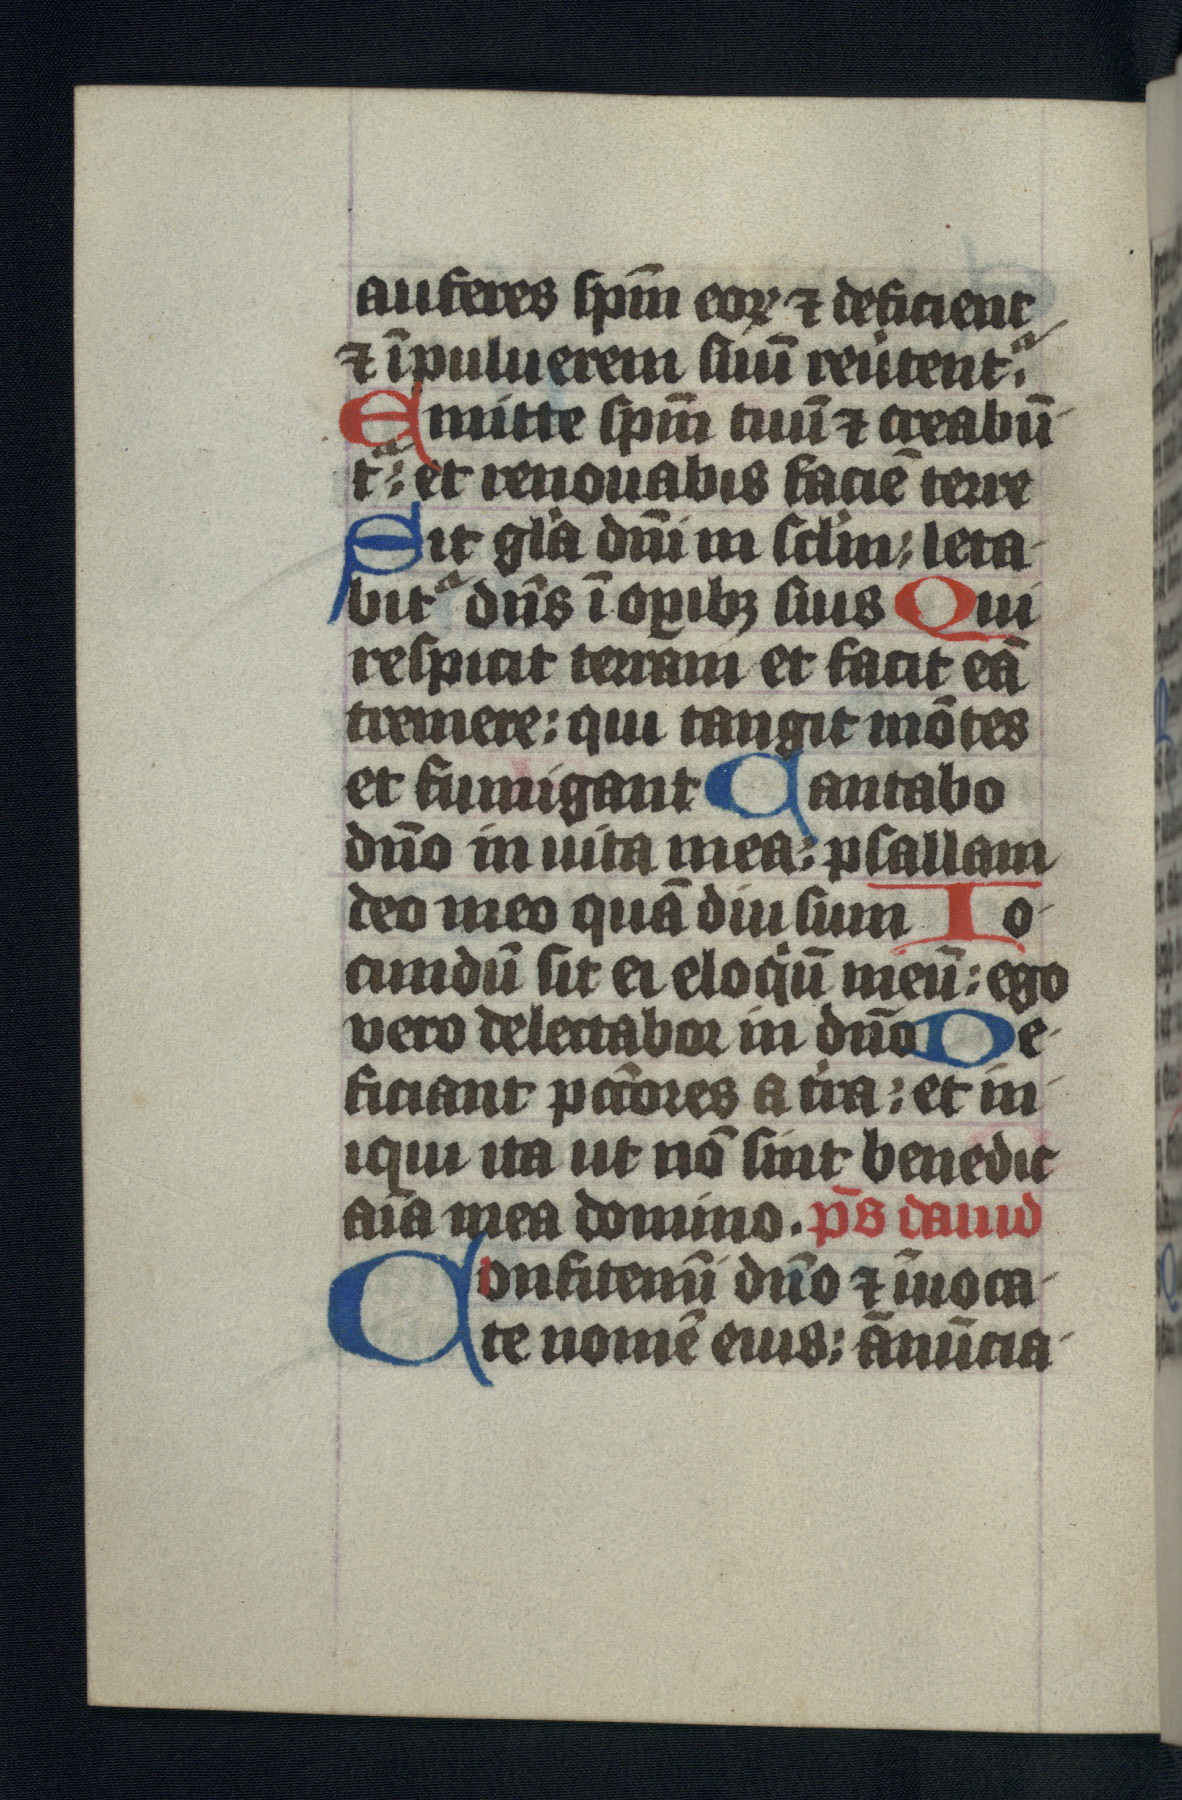 auferes sp̄m eoꝝ ⁊ deficient
⁊ ī puluerem suū reu͛tent᷑.
Emitte sp̄m tuū ⁊ creabū-
t᷑: et renouabis faciē terre
Sit gl̄a dn̄i in sclm: leta-
bit᷑ dn̄s ī oꝑibꝫ suis Qui
respicit terram et facit eā
tremere: qui tangit mōtes
et fumigant Cantabo
dn̄o in uita mea: psallam
deo meo quā diu sum Io-
cundū sit ei eloqͥū meū: ego
vero delectabor in dn̄o De-
ficiant pctōres a tr͛a: et in-
iqui ita ut nō sint benedic
aīa mea domino. p̄s dauid
Confitemī dn̄o ⁊ īuoca-
te nomē eius: ānūcia-